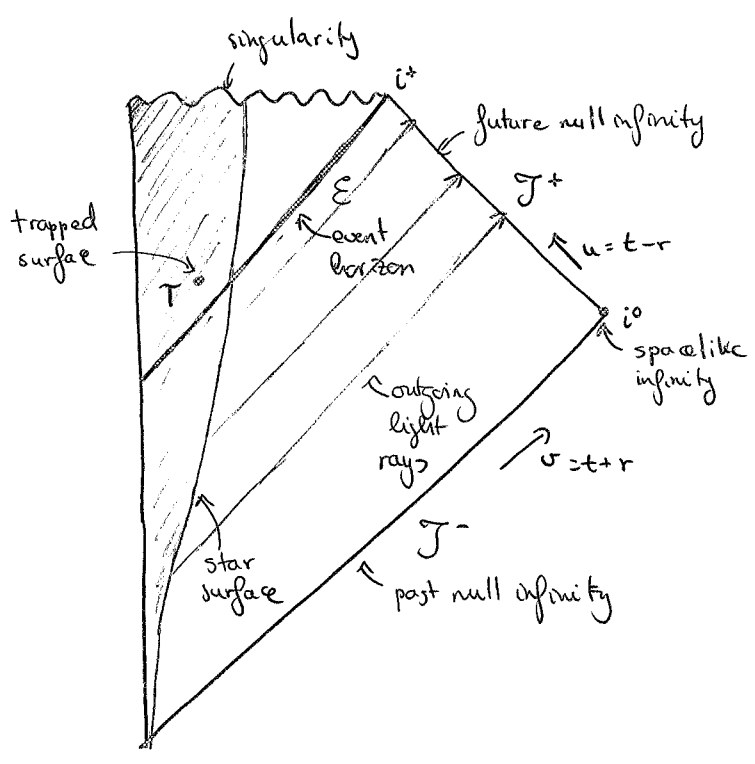 singularity
i⁺
future null infinity
J⁺
u = t - r
ε
event
horizon
trapped
surface
T
i⁰
spacelike
infinity
outgoing
light
rays
v = t + r
J⁻
star
surface
past null infinity